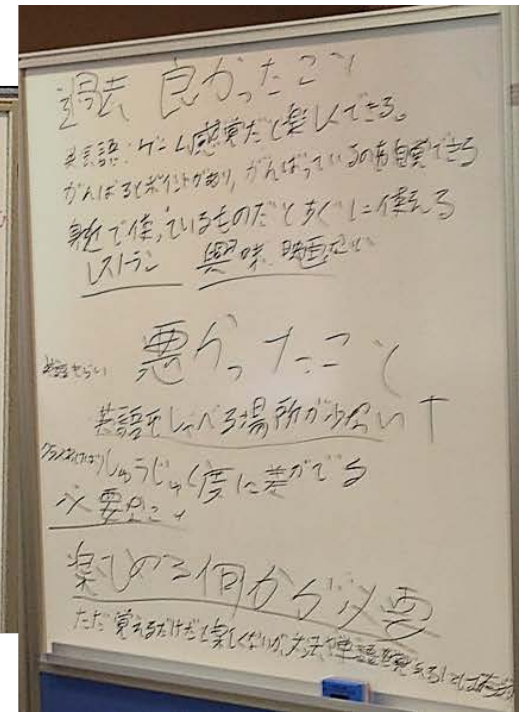 過去 良かったこと
英会話:ゲーム感覚だと楽しくできる。
がんばるとポイントがあり、がんばっているのも自覚できる
身近で使っているものだとすぐに使える
レストラン 興味 映画など
悪かったこと
英語きらい
英語をしゃべる場所が少ない↑
しゅうじゅく度に差がでる
必要なこと
楽しめる何かが必要
ただ覚えるだけだと楽しくないが、単語覚える